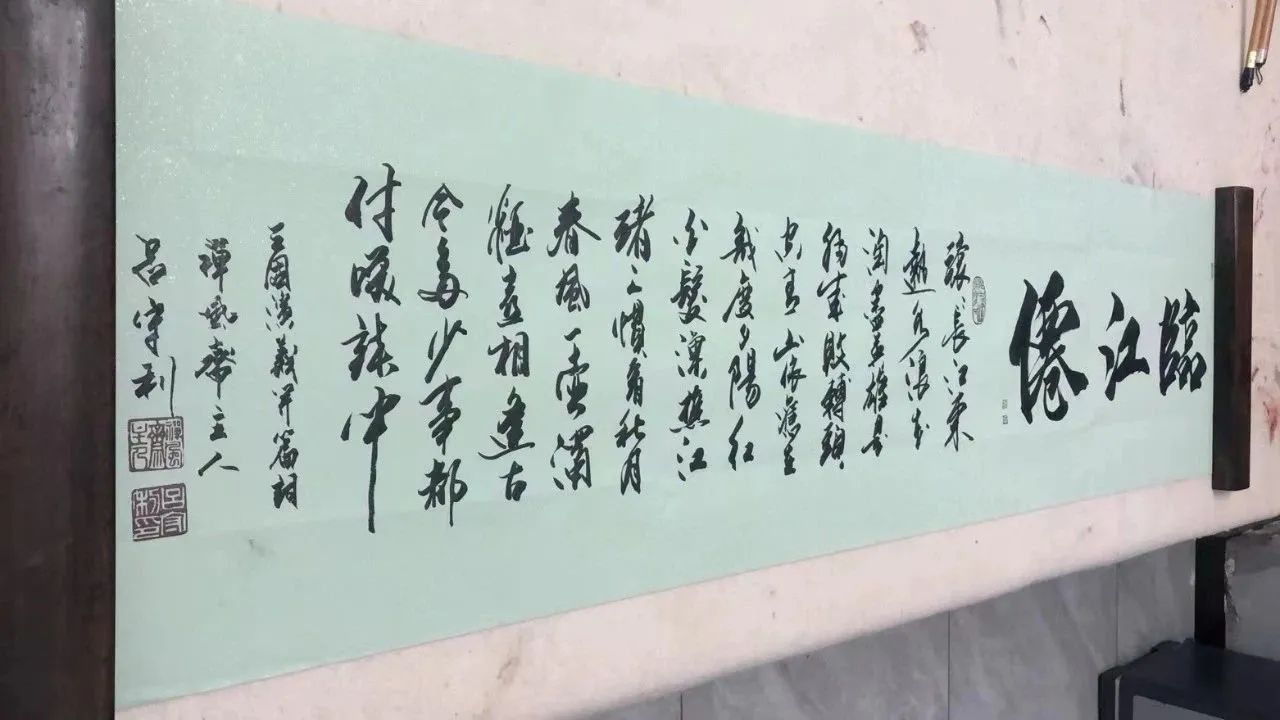 臨江僊
滾〻長江東
逝水浪花
淘盡英雄是
非成敗轉頭
空青山依舊在
幾度夕陽紅
白髮漁樵江
渚上慣看秋月
春風一壺濁
酒喜相逢古
今多少事都
付咲談中
三國演義開篇詞
禪風齋主人
呂守利
禪風齋主人
呂守利印